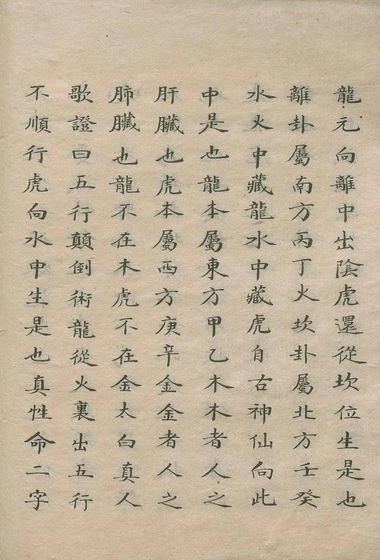 龍元向離中出陰虎還從坎位生是也
離卦屬南方丙丁火坎卦屬北方壬癸
水火中藏龍水中藏虎自古神仙向此
中是也龍本屬東方甲乙木木者人之
肝臟也虎本屬西方庚辛金金者人之
肺臟也龍不在木虎不在金太白真人
歌證曰五行顛倒術龍從火裏出五行
不順行虎向水中生是也真性命二字